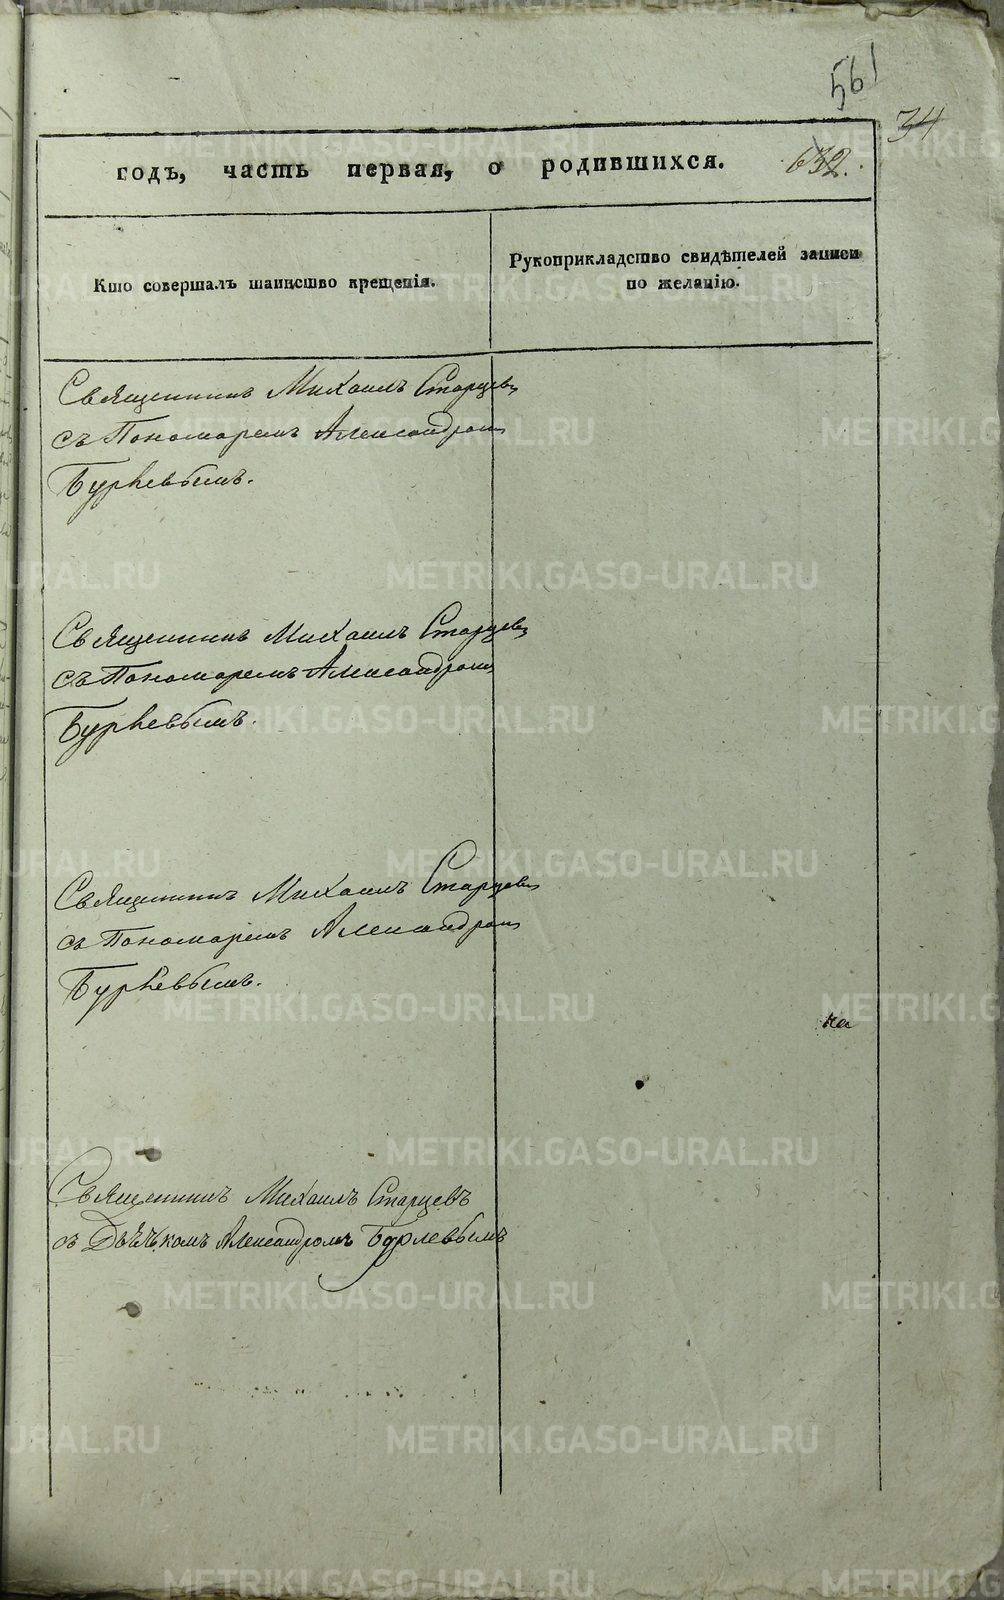 561
34
годъ, часть первая, о родившихся. 632.
Кто совершалъ таинство крещенія.
Рукоприкладство свидѣтелей записи
по желанію.
Священникъ Михаилъ Старцевъ
съ Пономаремъ Александромъ
Бурлевымъ.
Священникъ Михаилъ Старцевъ
съ Пономаремъ Александромъ
Бурлевымъ.
Священникъ Михаилъ Старцевъ
съ Пономаремъ Александромъ
Бурлевымъ.
Священникъ Михаилъ Старцевъ
съ Дьячкомъ Александромъ Бурлевымъ
METRIKI.GASO-URAL.RU